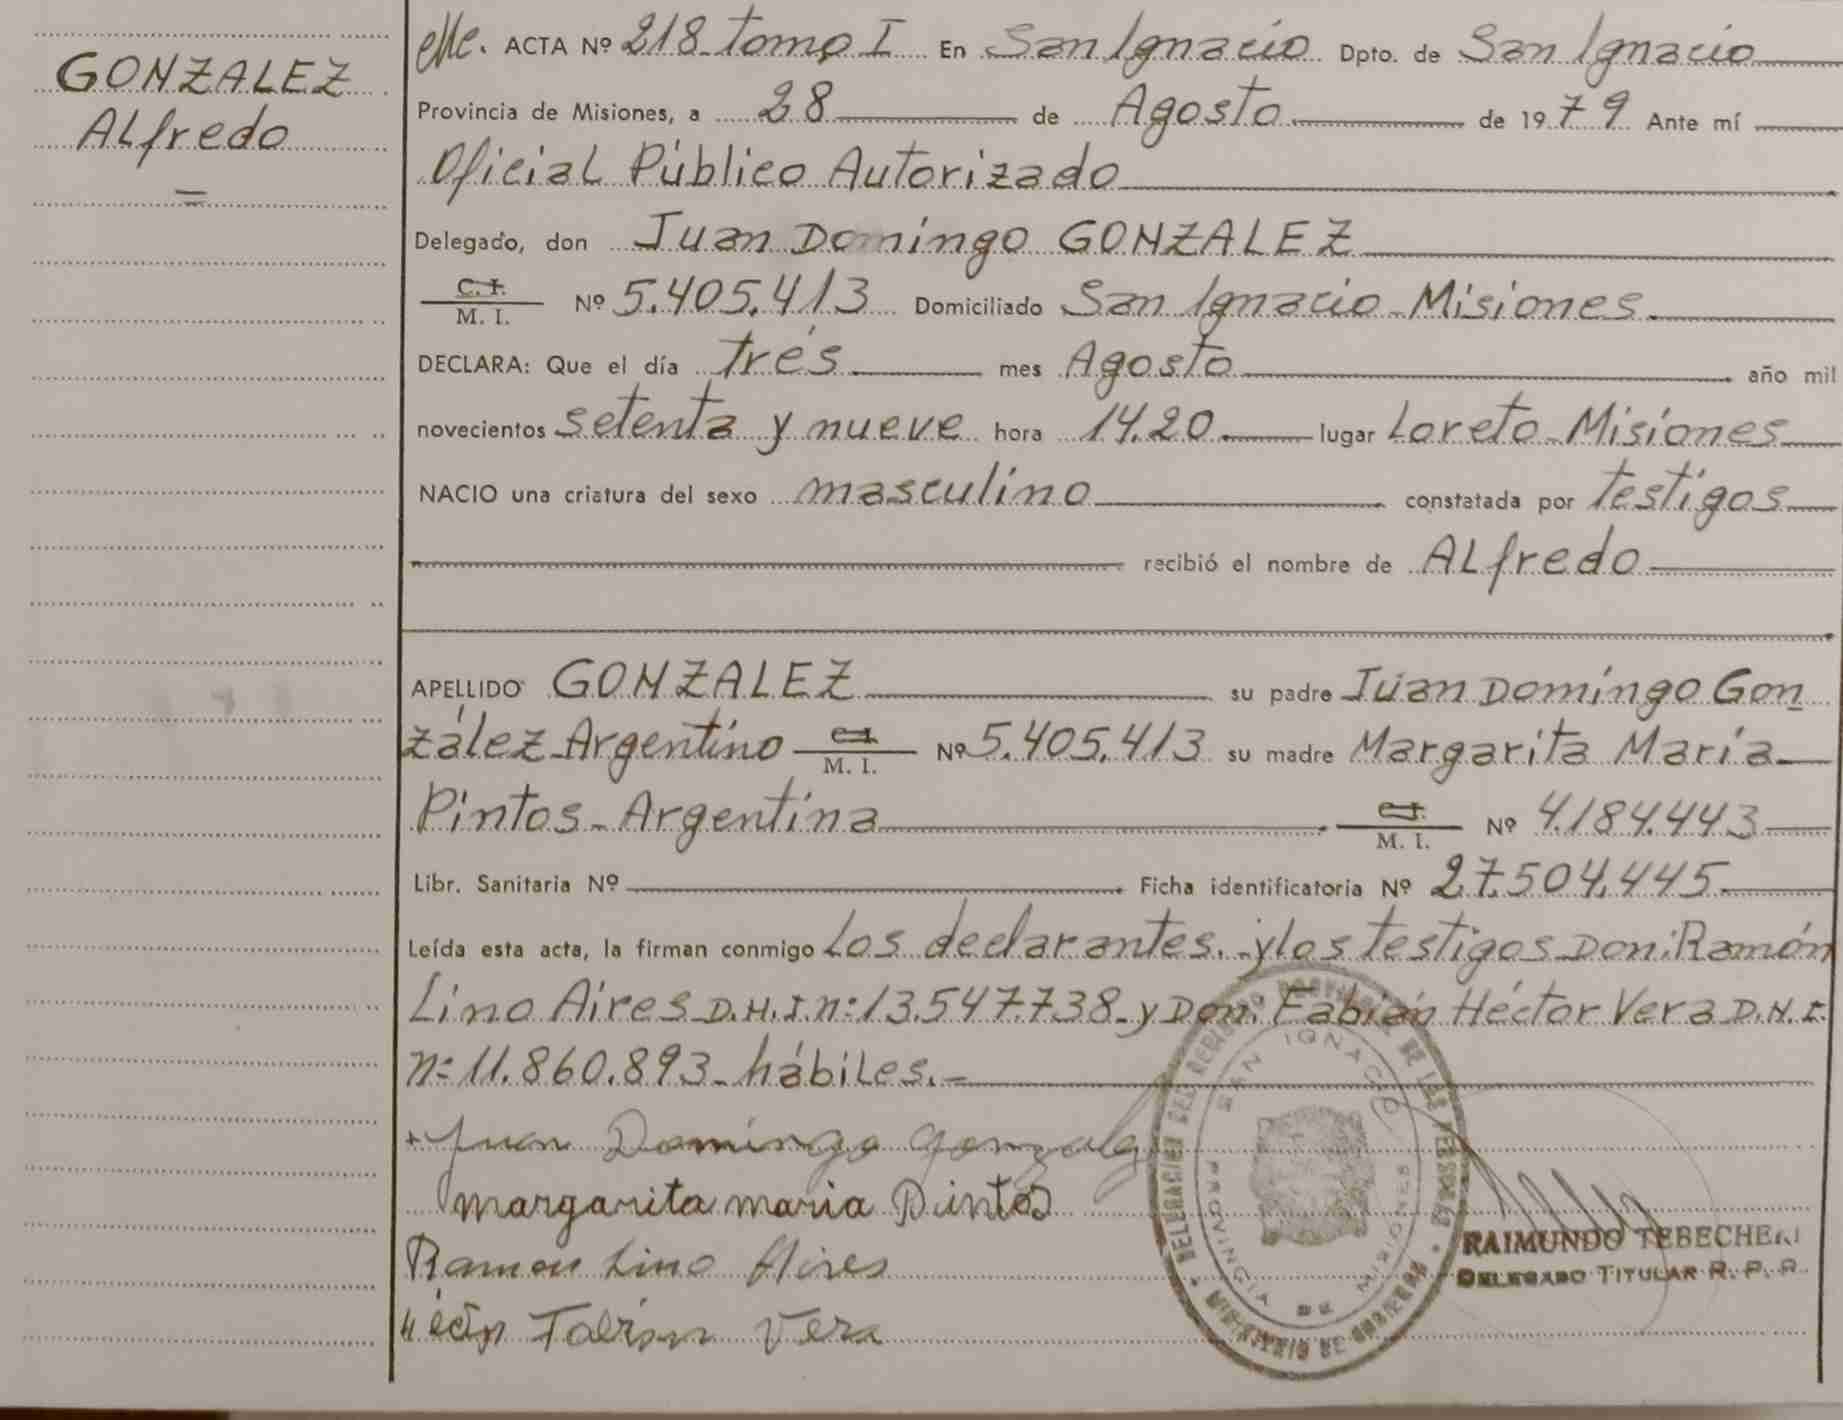 GONZALEZ
Alfredo
=
ACTA Nº 218 tomo I En San Ignacio Dpto. de San Ignacio
Provincia de Misiones, a 28 de Agosto de 1979 Ante mí
Oficial Público Autorizado
Delegado, don Juan Domingo GONZALEZ
C. I.
M. I. Nº 5.405.413 Domiciliado San Ignacio-Misiones.
DECLARA: Que el día trés mes Agosto año mil
novecientos setenta y nueve hora 14.20 lugar Loreto-Misiones
NACIO una criatura del sexo masculino constatada por testigos
recibió el nombre de Alfredo
APELLIDO GONZALEZ su padre Juan Domingo Gon
zález-Argentino C.I. M. I. Nº 5.405.413 su madre Margarita María
Pintos-Argentina C.I. M. I. Nº 4.184.443
Libr. Sanitaria Nº Ficha identificatoria Nº 27.504.445
Leída esta acta, la firman conmigo Los declarantes.-y los testigos Don: Ramón
Lino Aires D.N.I. n: 13.547.738-y Don: Fabián Héctor Vera D.N.I.
n: 11.860.893-hábiles.-
+ Juan Domingo Gonzalez
margarita maria Pintos
Ramon Lino Aires
Vera
SAN IGNACIO
PROVINCIA DE MISIONES
MINISTERIO DE GOBIERNO
RAIMUNDO TEBECHERI
DELEGADO TITULAR R. P. P.